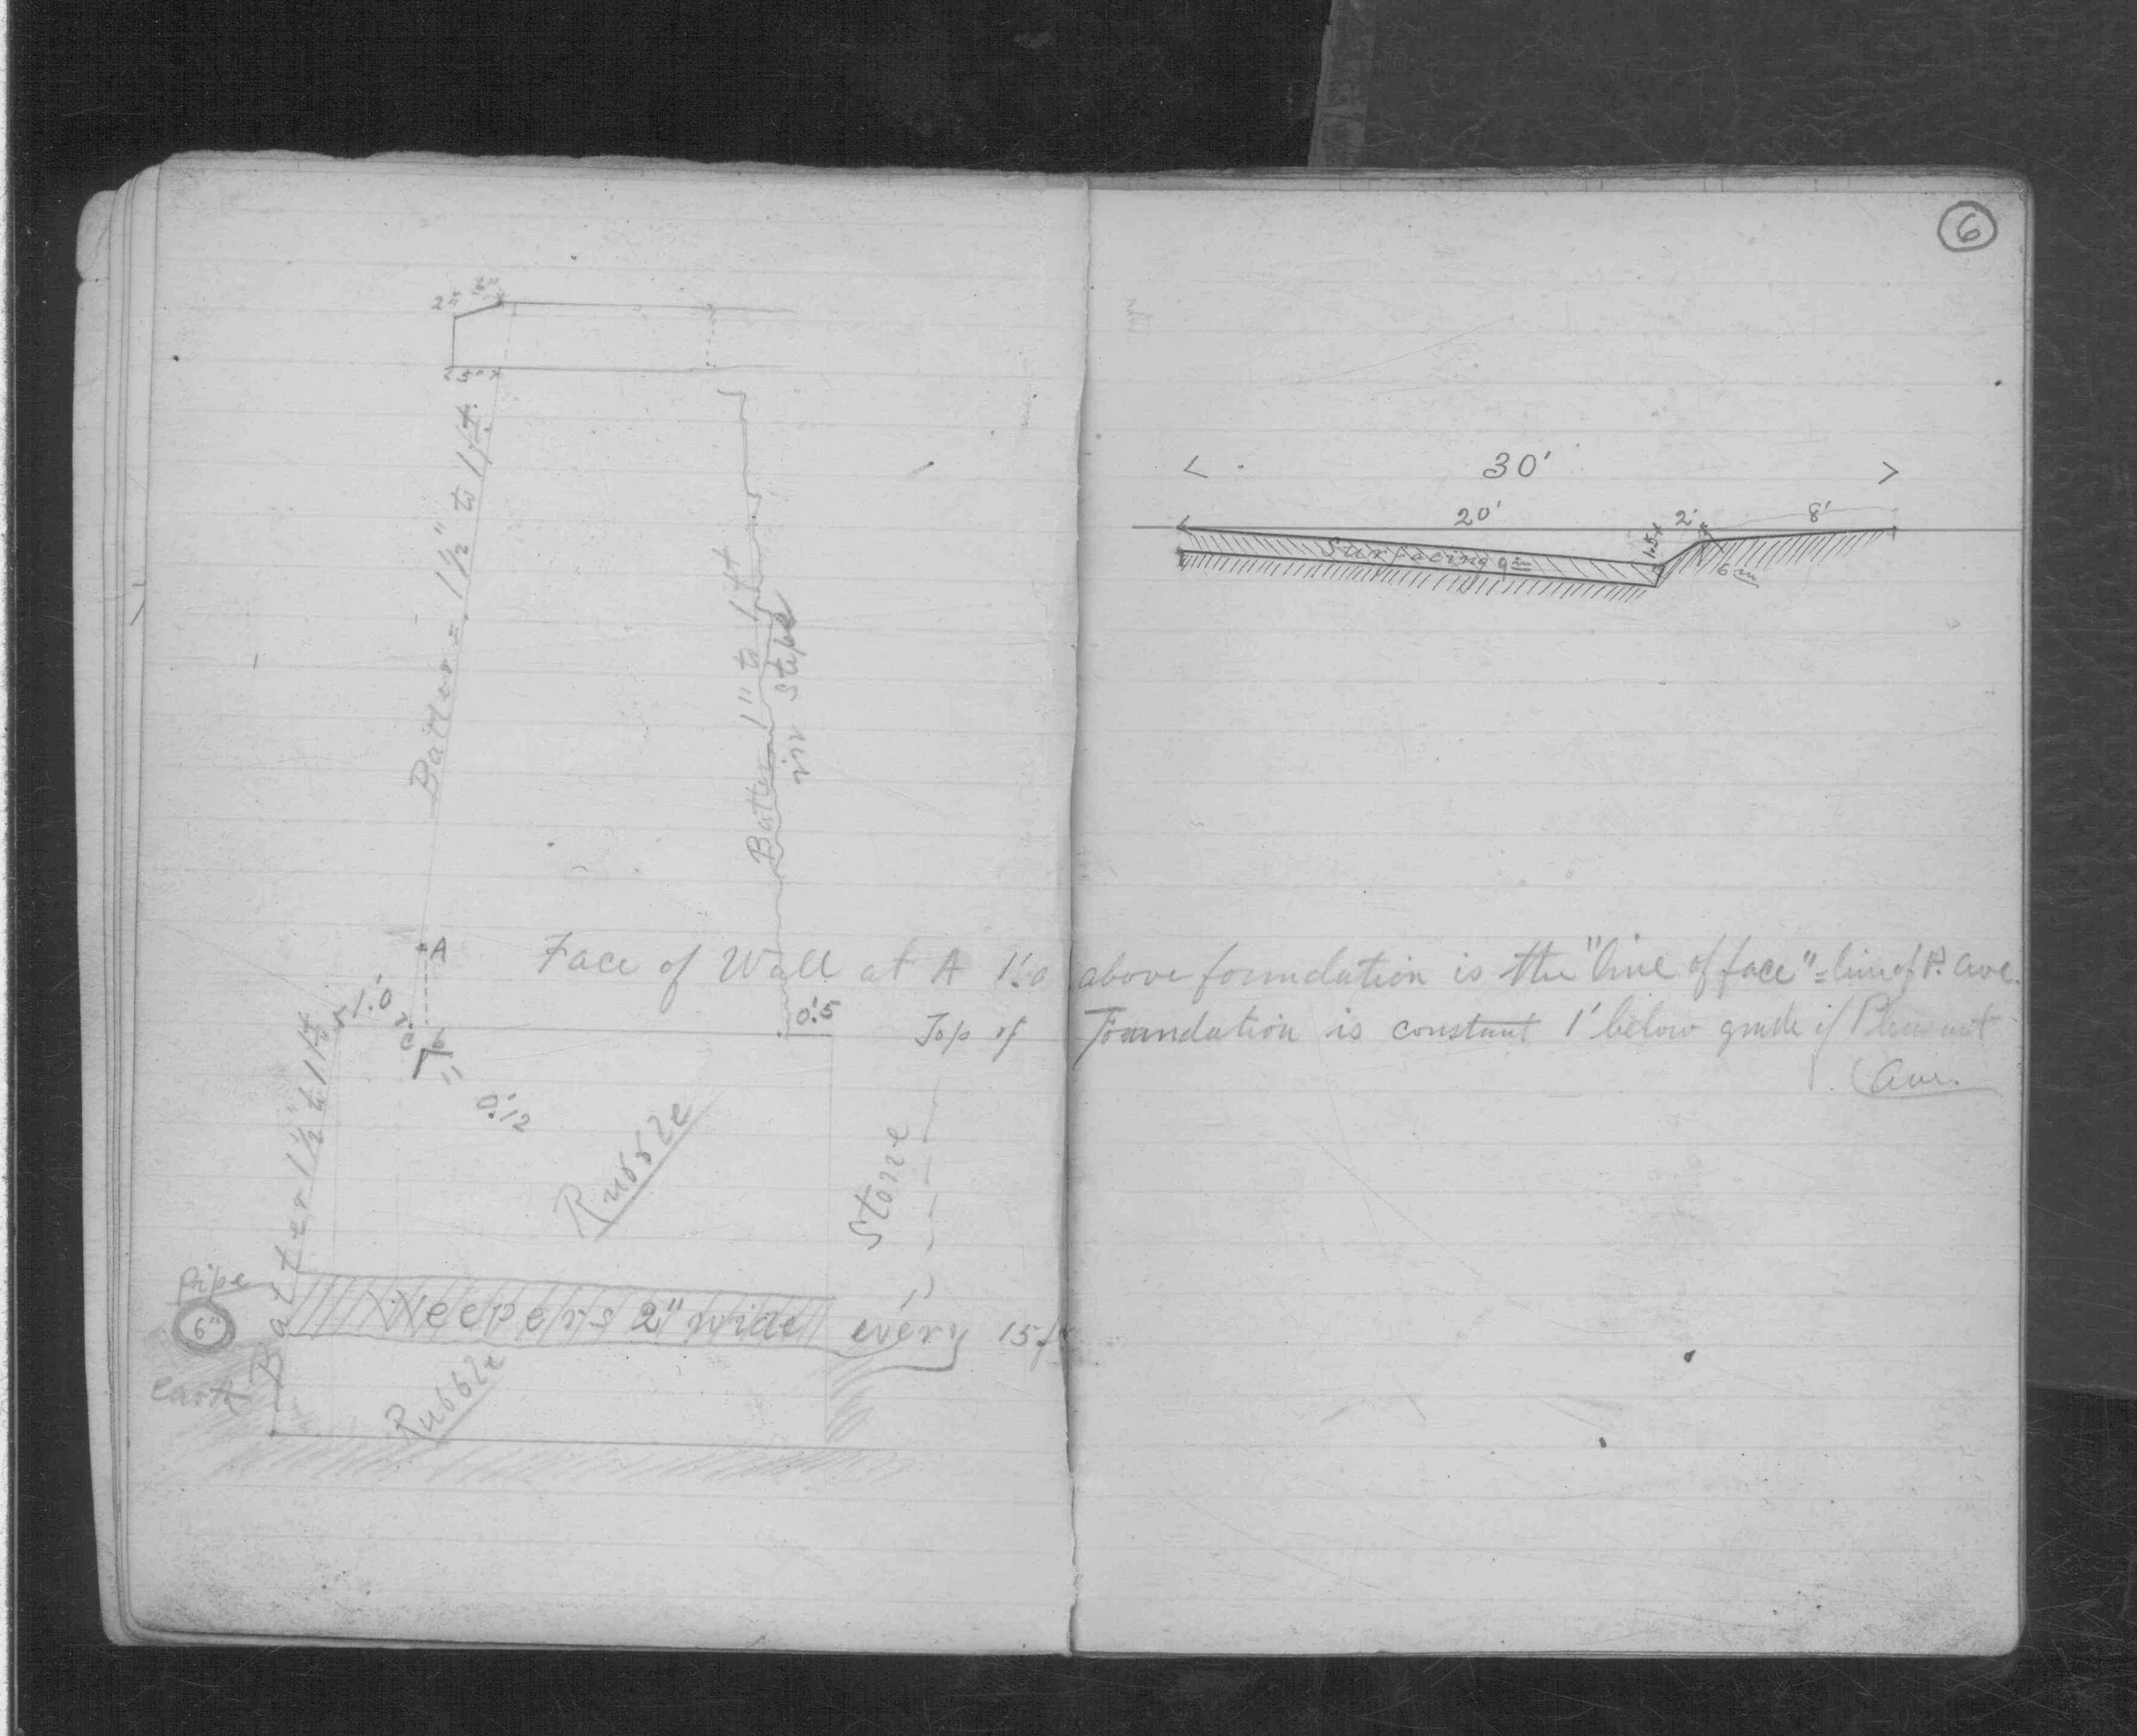 6
2" 6"
5"
Batter = 1 1/2" to 1 ft.
Batter 1" to 1 ft
in steps
30'
20' 2' 8'
1.5
Surfacing 9 in
6 in
A
Face of Wall at A 1'.0 above foundation is the "line of face" = line of P. Ave.
1'.0
0'.5
Top of Foundation is constant 1' below grade of Pleasant
Ave.
C
0'.12
Batter 1 1/2" to 1 ft
Rubble
Stone
pipe
6"
Weepers 2" wide every 15 ft
Earth
Rubble